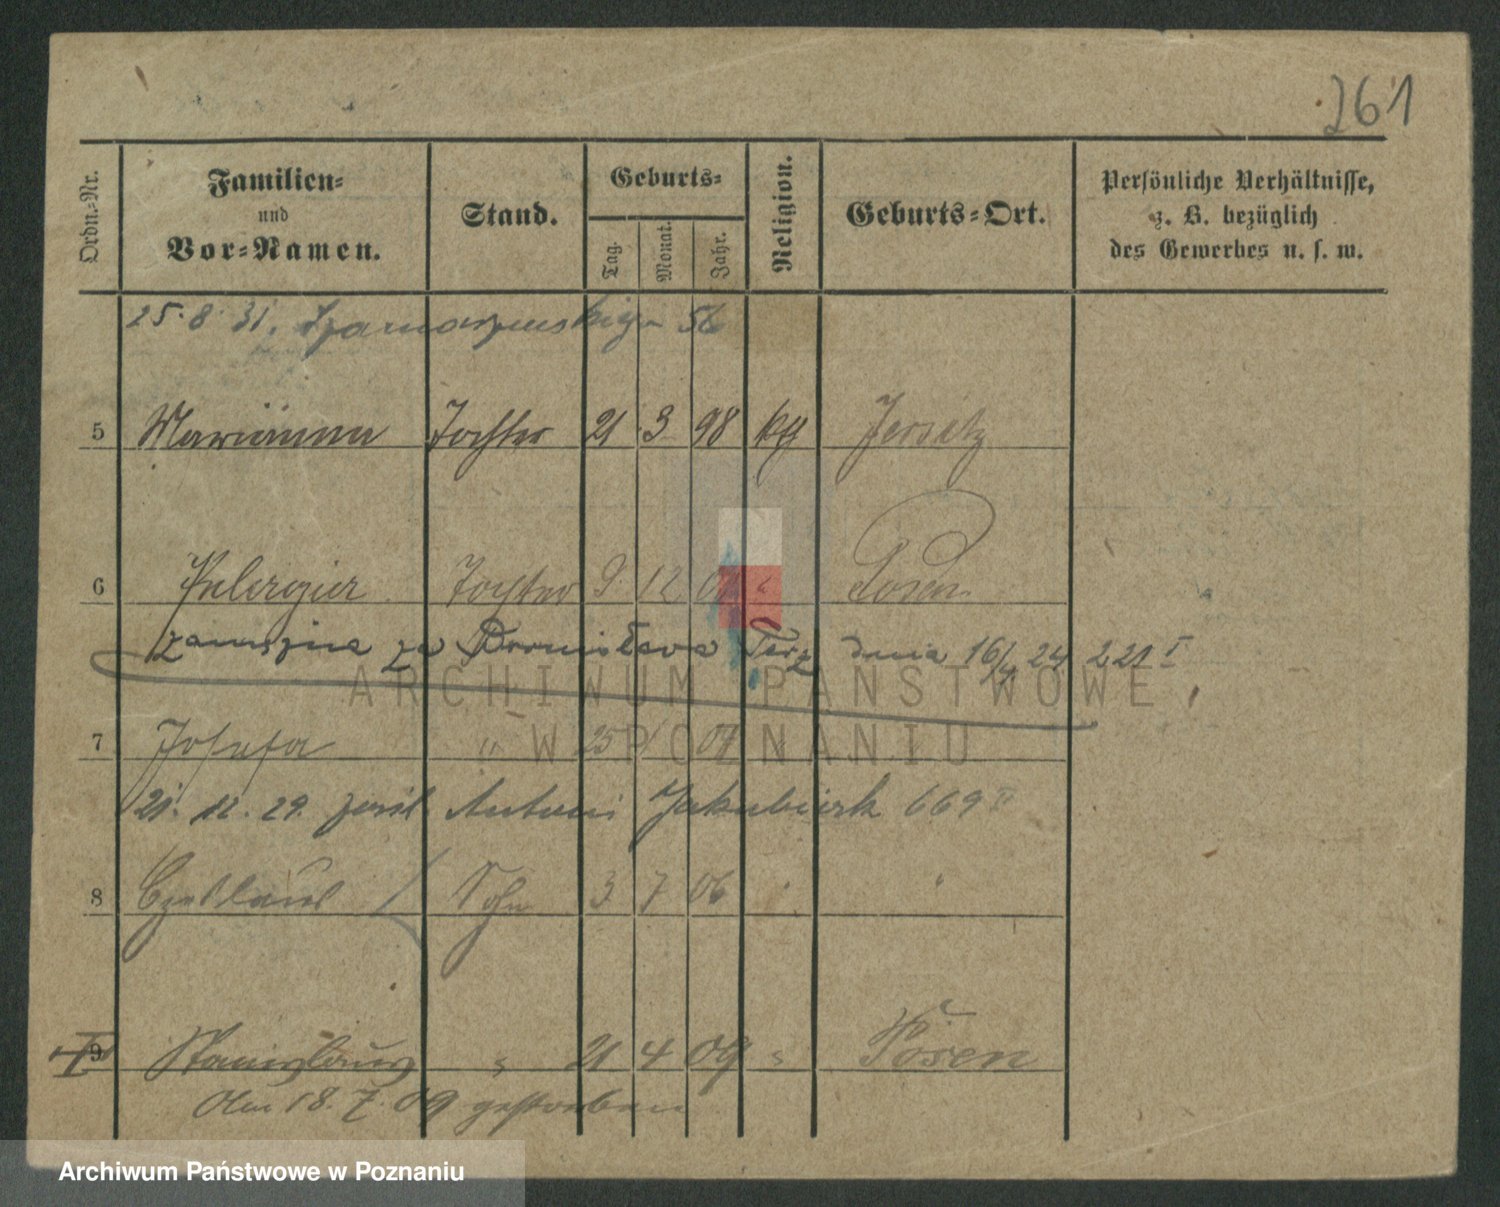 261
Ordn.-Nr.
Familien-
und
Vor-Namen.
Stand.
Geburts-
Tag.
Monat.
Jahr.
Religion.
Geburts-Ort.
Persönliche Verhältnisse,
z. B. bezüglich
des Gewerbes u. s. w.
25. 8. 31. 56
5 Marianna Tochter 21 3 98 kth Jersitz
6 Tochter 9 12 Posen
zamężna za Bronisława dnia 16/4 24 221 I
7 Josefa " 25 07
21. 12. 29. Antoni Jakubiak 669 II
8 Czeslaus Sohn 3 7 06 "
9 Stanislaus " 21 4 09 " Posen
Am 18. 7. 09 gestorben
ARCHIWUM PAŃSTWOWE
W POZNANIU
Archiwum Państwowe w Poznaniu